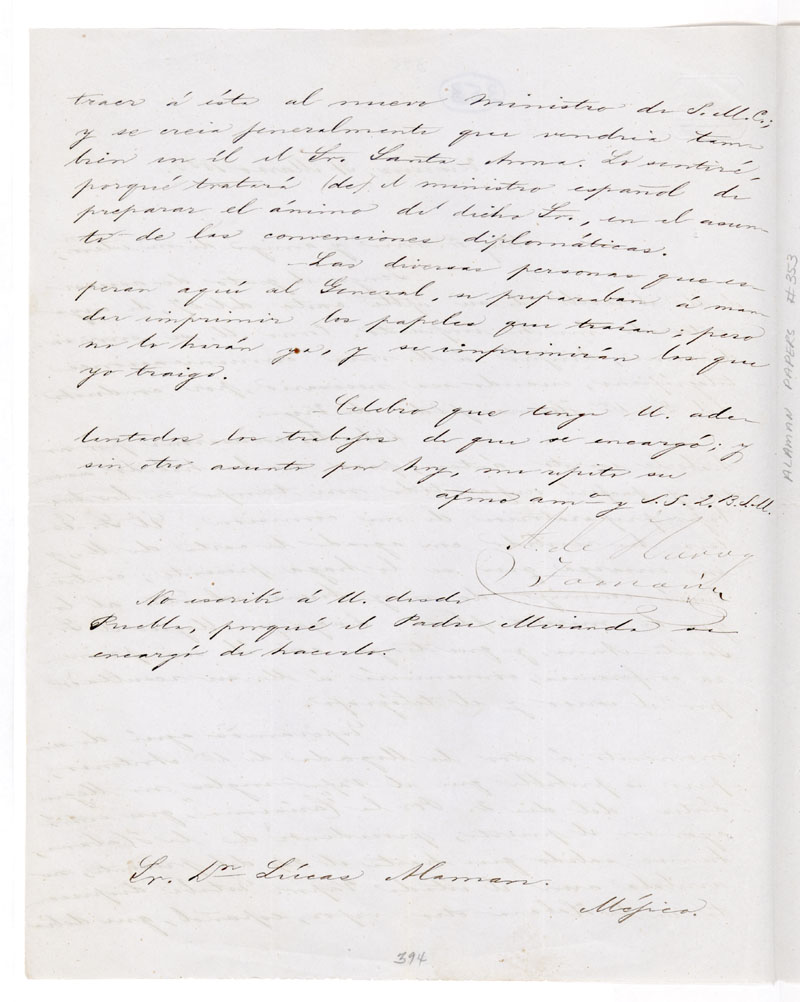 traer á ésta al nuevo Ministro de S.M.C.;
y se creia generalmente que vendria tam-
bien en él el Sr. Santa Anna. Lo sentiré,
porqué tratará (de) el ministro español de
preparar el ánimo de dicho Sr., en el asun-
to de las convenciones diplomáticas.
Las diversas personas que es-
peran aquí al General, se preparaban á man-
dar imprimir los papeles que traían; pero
no lo harán ya, y se imprimirán los que
yo traigo.
Celebro que tenga U. ade-
lantados los trabajos de que se encargó; y
sin otro asunto por hoy, me repito su
afmo amo y S. S. Q. B. S. M.
A. de Haro y
Tamariz
No escribí á U. desde
Puebla, porqué el Padre Miranda se
encargó de hacerlo.
Sr. Dn Lúcas Alaman.
Méjico.
394
ALAMAN PAPERS #353